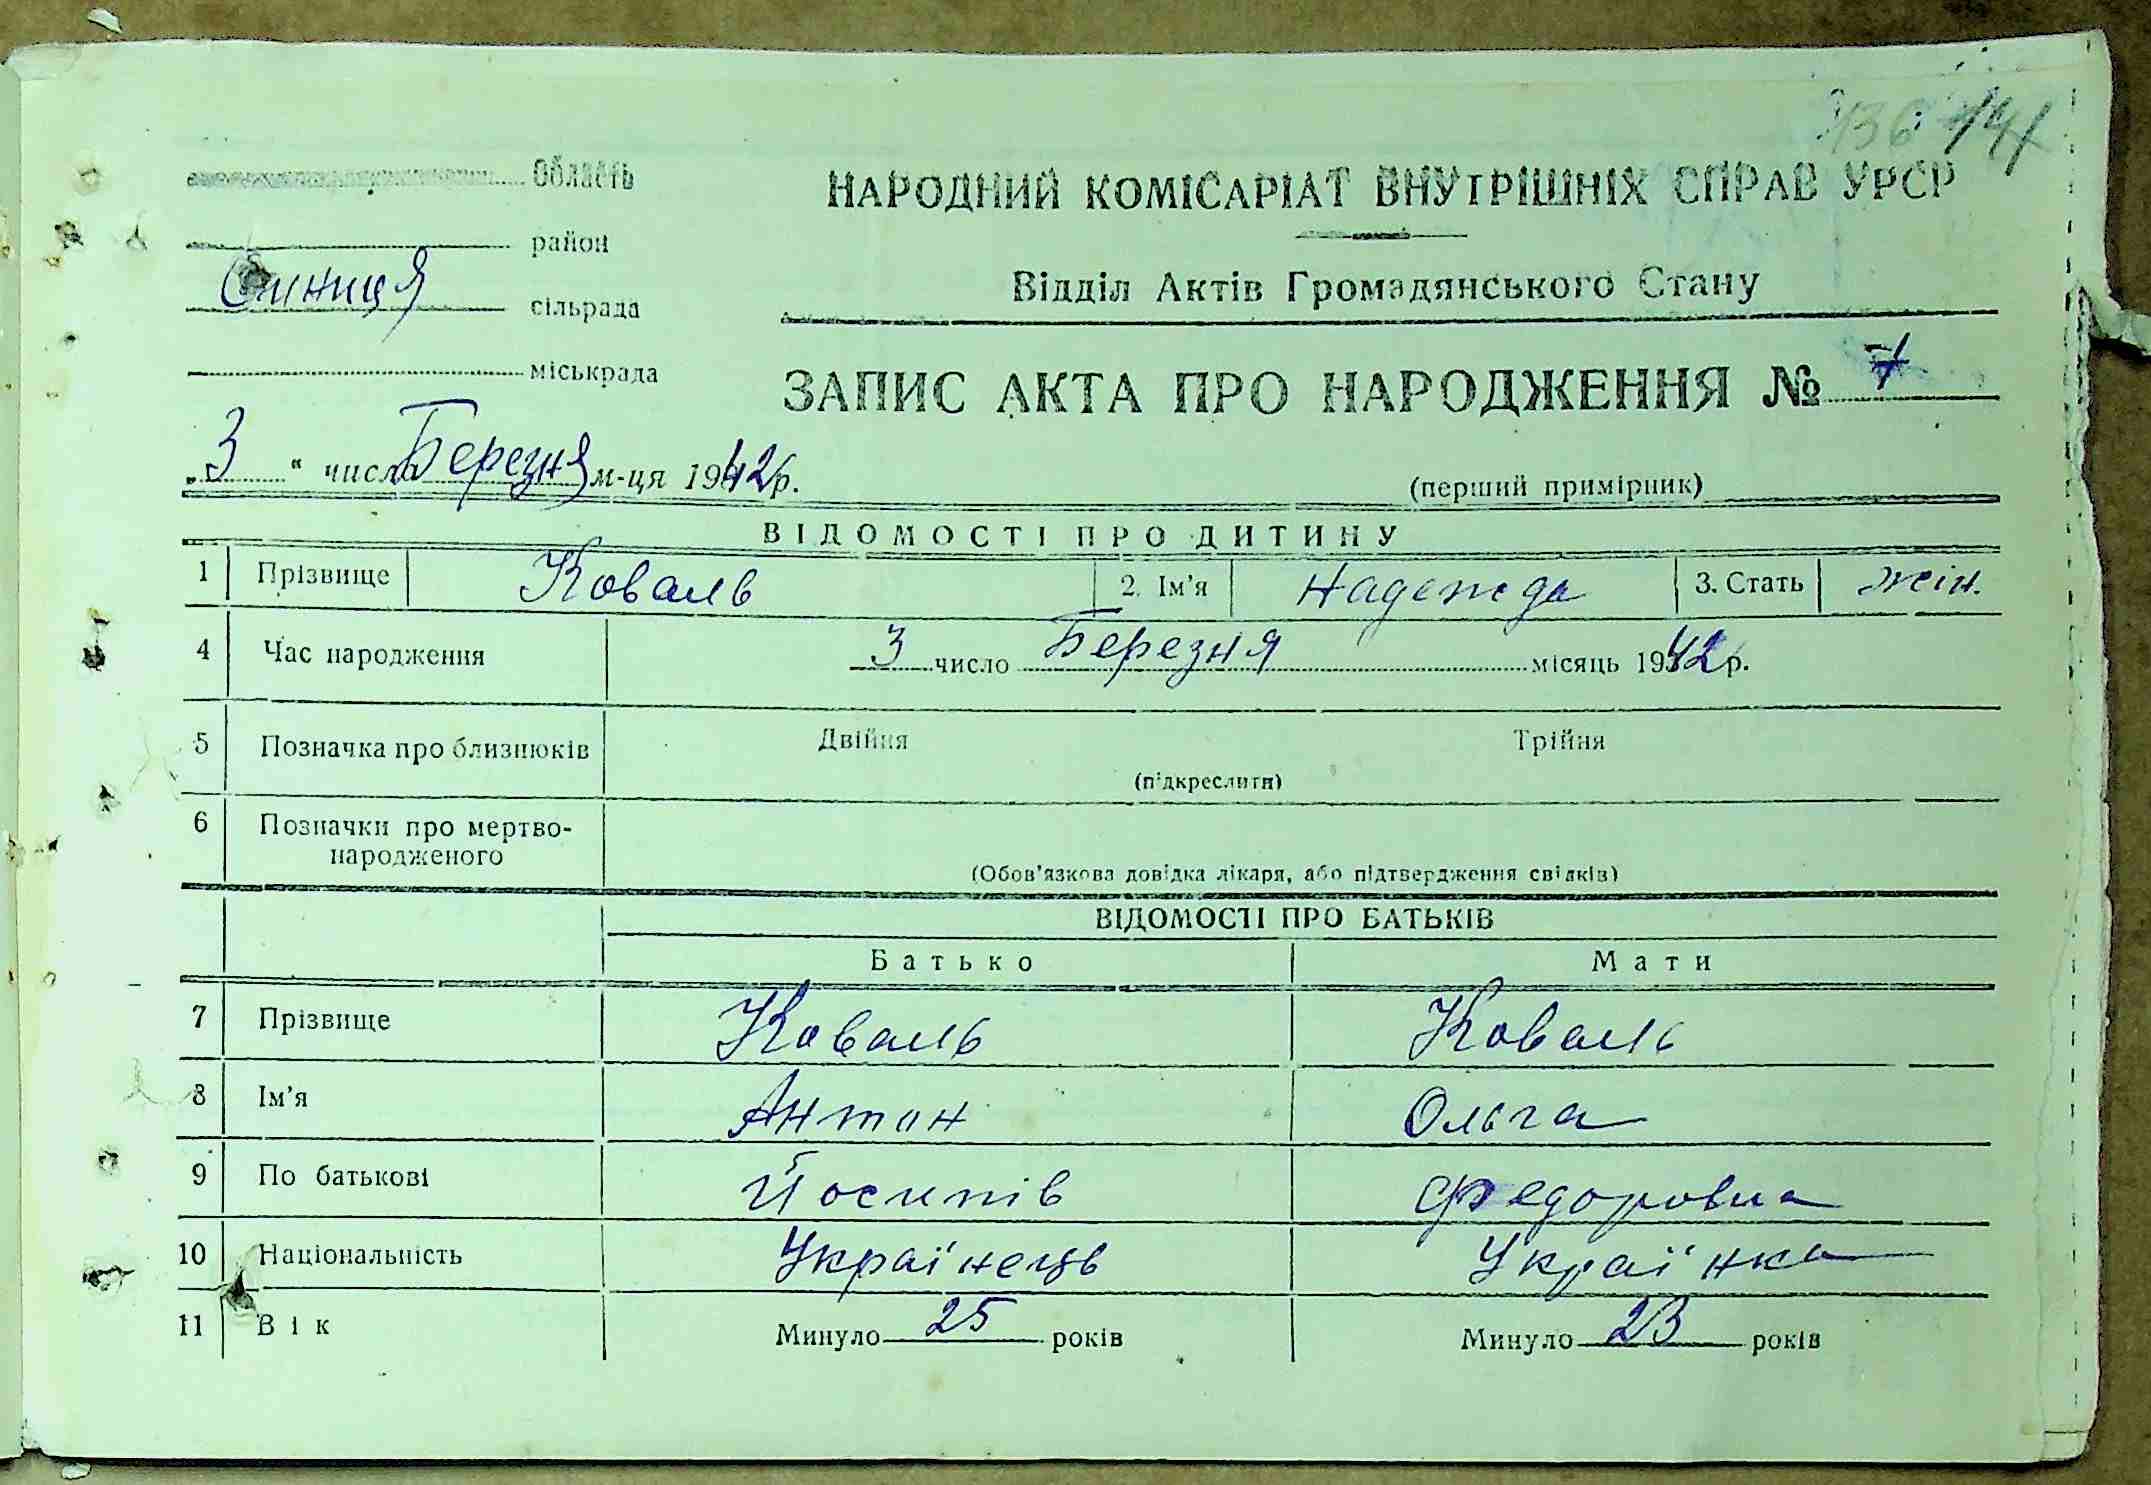 Область
НАРОДНИЙ КОМІСАРІАТ ВНУТРІШНІХ СПРАВ УРСР
район
Синиця сільрада
Відділ Актів Громадянського Стану
міськрада
ЗАПИС АКТА ПРО НАРОДЖЕННЯ № 7
„ 3 “ числа Березня м-ця 1942 р.
(перший примірник)
ВІДОМОСТІ ПРО ДИТИНУ
1 Прізвище Коваль 2. Ім'я Надежда 3. Стать жін.
4 Час народження 3 число Березня місяць 1942 р.
5 Позначка про близнюків Двійня Трійня
(підкреслити)
6 Позначки про мертво-
народженого
(Обов'язкова довідка лікаря, або підтвердження свідків)
ВІДОМОСТІ ПРО БАТЬКІВ
Батько Мати
7 Прізвище Коваль Коваль
8 Ім'я Антон Ольга
9 По батькові Йосипів Федоровна
10 Національність Українець Українка
11 Вік Минуло 25 років Минуло 23 років